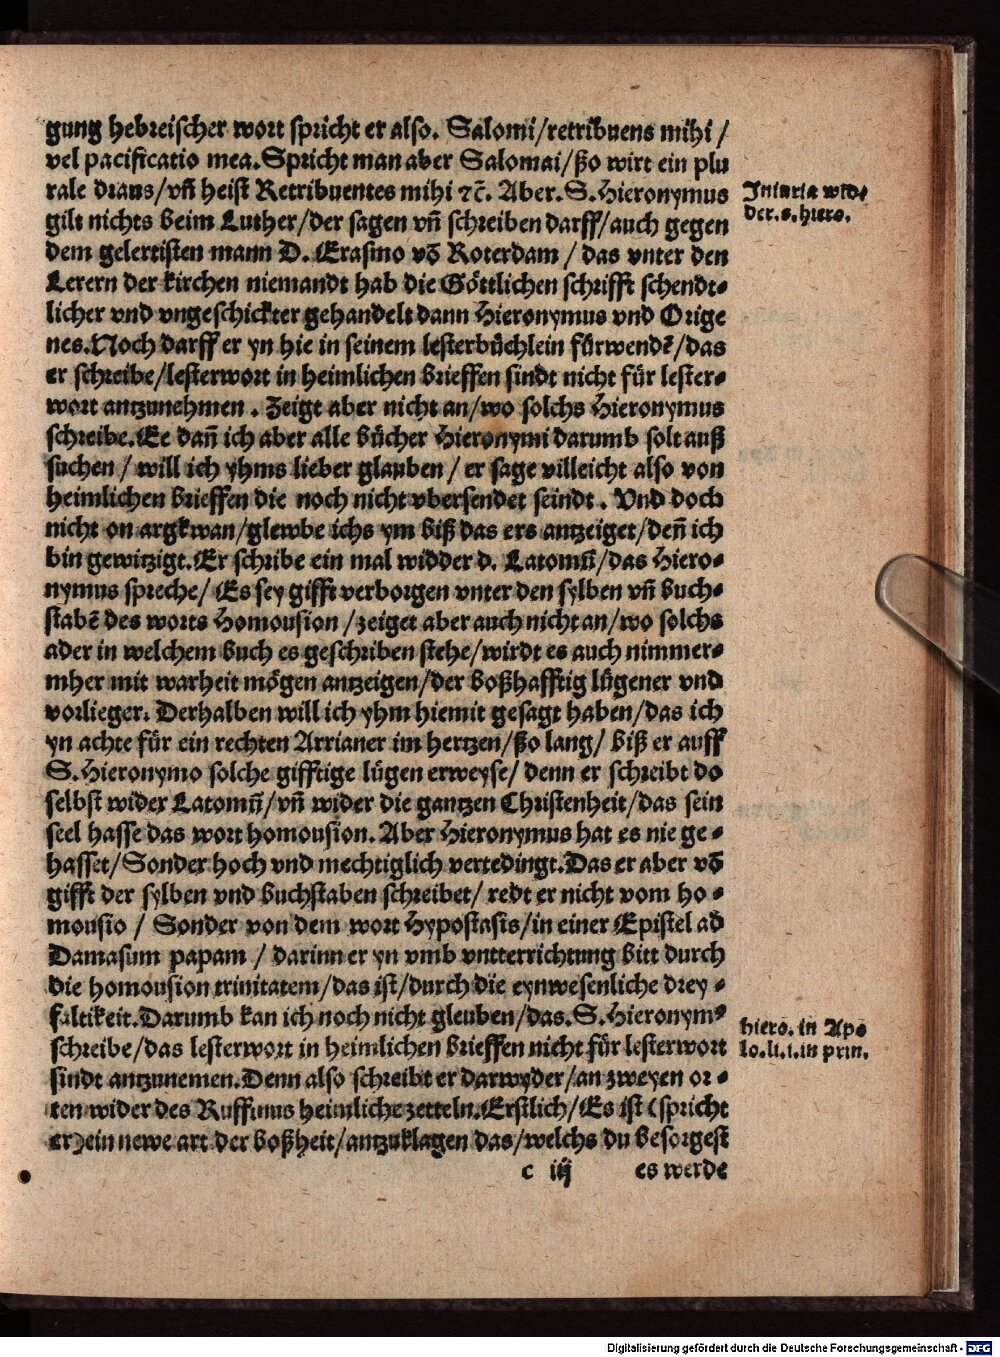 gung hebreischer wort spricht er also. Salomi/retribuens mihi /
vel pacificatio mea. Spricht man aber Salomai/ßo wirt ein plu
rale draus/vñ heist Retribuentes mihi ⁊c̃. Aber. S. Hieronymus
gilt nichts beim Luther/der sagen vñ schreiben darff/auch gegen
dem gelertisten mann D. Erasmo võ Roterdam / das vnter den
Lerern der kirchen niemandt hab die Göttlichen schrifft schendt⸗
licher vnd vngeschickter gehandelt dann Hieronymus vnd Orige
nes. Noch darff er yn hie in seinem lesterbüchlein fürwendẽ/das
er schreibe/lesterwort in heimlichen brieffen sindt nicht für lester⸗
wort antzunehmen . Zeigt aber nicht an/wo solchs Hieronymus
schreibe. Ee dañ ich aber alle bücher Hieronymi darumb solt auß
suchen / will ich yhms lieber glauben / er sage villeicht also von
heimlichen brieffen die noch nicht vbersendet seindt . Vnd doch
nicht on argkwan/glewbe ichs ym biß das ers antzeiget/deñ ich
bin gewitzigt. Er schribe ein mal widder d. Latomũ/das Hiero⸗
nymus spreche/ Es sey gifft verborgen vnter den sylben vñ buch⸗
stabẽ des worts Homousion /zeiget aber auch nicht an/wo solchs
ader in welchem buch es geschriben stehe/wirdt es auch nimmer⸗
mher mit warheit mögen antzeigen/der boßhafftig lügener vnd
vorlieger. Derhalben will ich yhm hiemit gesagt haben/das ich
yn achte für ein rechten Arrianer im hertzen/ßo lang/ biß er auff
S. Hieronymo solche gifftige lügen erweyse/ denn er schreibt do
selbst wider Latomũ/vñ wider die gantzen Christenheit/das sein
seel hasse das wort homousion. Aber Hieronymus hat es nie ge⸗
hasset/Sonder hoch vnd mechtiglich vertedingt. Das er aber võ
gifft der sylben vnd buchstaben schreibet/ redt er nicht vom ho⸗
mousio / Sonder von dem wort Hypostasis/in einer Epistel ad
Damasum papam / darinn er yn vmb vntterrichtung bitt durch
die homousion trinitatem/das ist/durch die eynwesenliche drey⸗
faltikeit. Darumb kan ich noch nicht gleuben/das. S. Hieronymꝰ
schreibe/das lesterwort in heimlichen brieffen nicht für lesterwort
sindt antzunemen. Denn also schreibt er darwyder/an zweyen or⸗
ten wider des Ruffinus heimliche zetteln. Erstlich/Es ist (spricht
er) ein newe art der boßheit/antzuklagen das/welchs du besorgest
c iij es werde
Iniuria wid⸗
der. s. hiero.
hiero. in Apo
lo. li. 1. in prin.
Digitalisierung gefördert durch die Deutsche Forschungsgemeinschaft - DFG